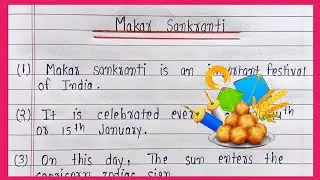 Makar Sankranti
(1) Makar sankranti is an important festival
of India.
(2) It is celebrated every 14th
or 15th January.
(3) On this day, The sun enters the
capricorn zodiac sign.